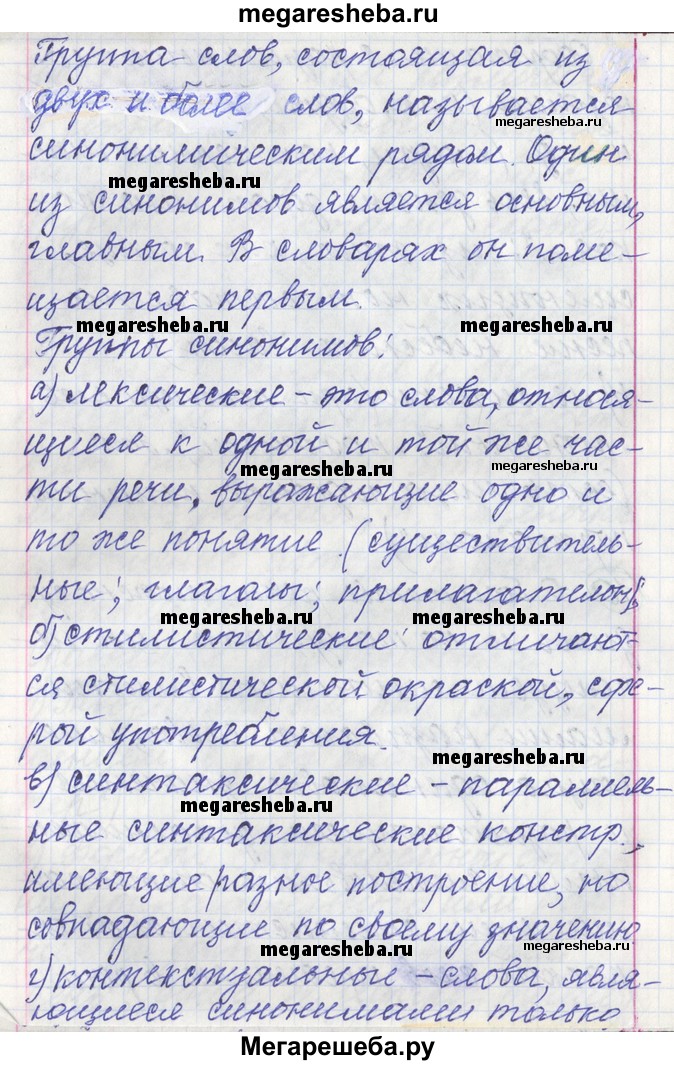 megaresheba.ru
Группа слов, состоящая из
двух и более слов, называется
megaresheba.ru
синонимическим рядом. Один
megaresheba.ru
из синонимов является основным,
главным. В словарях он поме-
щается первым.
megaresheba.ru
megaresheba.ru
Группы синонимов:
а) лексические – это слова, относя-
щиеся к одной и той же час-
megaresheba.ru
ти речи, выражающие одно и
то же понятие (существитель-
ные; глаголы; прилагательн);
megaresheba.ru
megaresheba.ru
б) стилистические: отличают-
ся стилистической окраской, сфе-
рой употребления.
megaresheba.ru
в) синтаксические – параллель-
megaresheba.ru
ные синтаксические констр.,
имеющие разное построение, но
совпадающие по своему значению
megaresheba.ru
megaresheba.ru
г) контекстуальные – слова, явля-
ющиеся синонимами только
Мегарешеба.ру